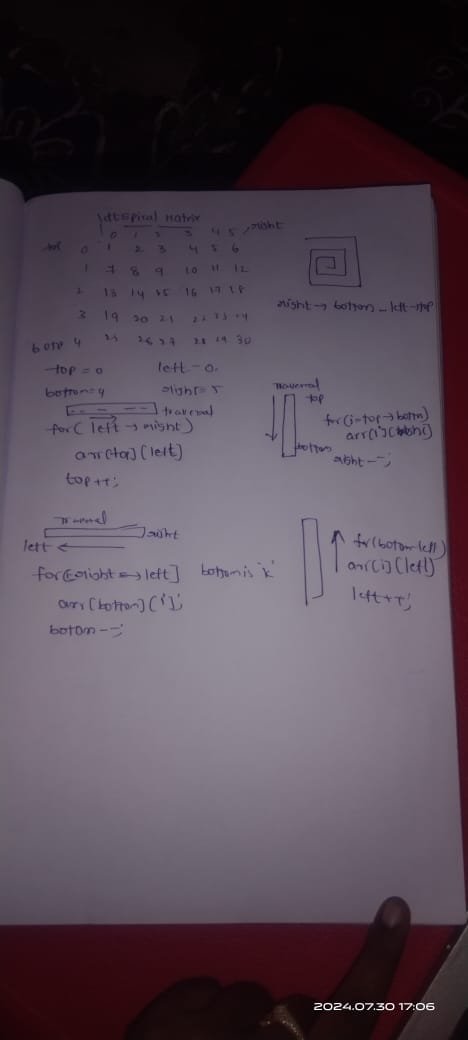 Spiral Matrix
0 1 2 3 4 5 right
top 0 1 2 3 4 5 6
1 7 8 9 10 11 12
2 13 14 15 16 17 18
3 19 20 21 22 23 24
4 25 26 27 28 29 30
right → bottom - left → top
top = 0 left = 0.
bottom = 4 right = 5
traversal
for( left → right)
arr[top][left]
top++;
traversal
top
for(i=top→bottom)
arr[i][right]
bottom
right--;
right
left ←
for( right → left] bottom is 'k'
arr[bottom][i];
bottom--;
for(bottom-left)
arr[i][left]
left++;
2024.07.30 17:06